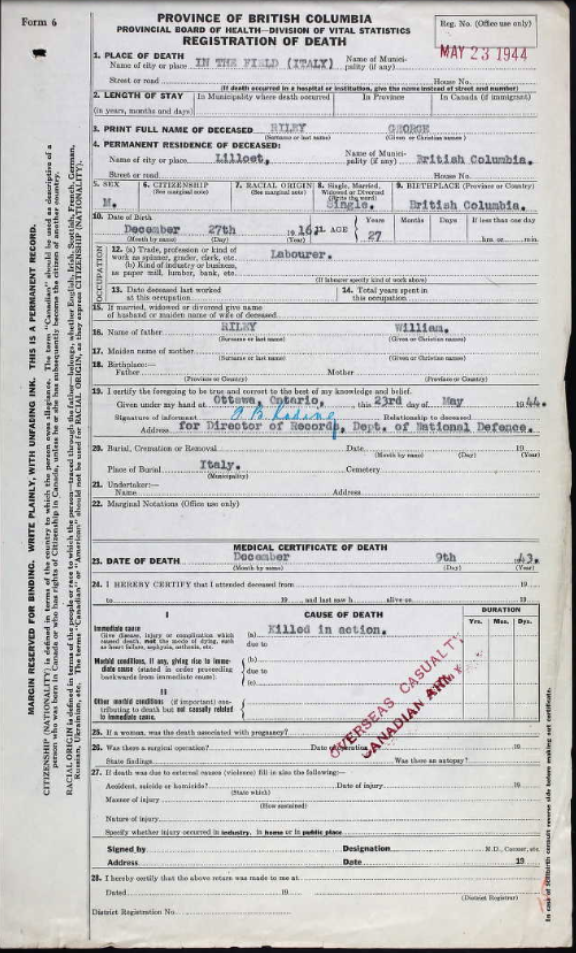 Form 6
PROVINCE OF BRITISH COLUMBIA
PROVINCIAL BOARD OF HEALTH—DIVISION OF VITAL STATISTICS
REGISTRATION OF DEATH
Reg. No. (Office use only)
MAY 23 1944
1. PLACE OF DEATH
Name of city or place IN THE FIELD (ITALY) Name of Munici-
pality (if any)
Street or road House No.
(If death occurred in a hospital or institution, give the name instead of street and number)
2. LENGTH OF STAY In Municipality where death occurred In Province In Canada (if immigrant)
(in years, months and days)
3. PRINT FULL NAME OF DECEASED RILEY GEORGE
(Surname or last name) (Given or Christian names)
4. PERMANENT RESIDENCE OF DECEASED:
Name of city or place Lilloet, Name of Munici-
pality (if any) British Columbia.
Street or road House No.
5. SEX 6. CITIZENSHIP 7. RACIAL ORIGIN 8. Single, Married, 9. BIRTHPLACE (Province or Country)
(See marginal note) (See marginal note) Widowed or Divorced
(Write the word)
M. Single. British Columbia.
10. Date of Birth
December 27th 1916. 11. AGE Years 27 Months Days If less than one day
(Month by name) (Day) (Year) hrs. or min.
OCCUPATION
12. (a) Trade, profession or kind of
work as spinner, grader, clerk, etc. Labourer.
(b) Kind of industry or business,
as paper mill, lumber, bank, etc.
(If labourer specify kind of work above)
13. Date deceased last worked
at this occupation 14. Total years spent in
this occupation
15. If married, widowed or divorced give name
of husband or maiden name of wife of deceased
16. Name of father RILEY William.
(Surname or last name) (Given or Christian names)
17. Maiden name of mother
(Surname or last name) (Given or Christian names)
18. Birthplace:—
Father Mother
(Province or Country) (Province or Country)
19. I certify the foregoing to be true and correct to the best of my knowledge and belief.
Given under my hand at Ottawa, Ontario, this 23rd day of May 1944.
Signature of informant Relationship to deceased
Address for Director of Records, Dept. of National Defence.
20. Burial, Cremation or Removal Date 19
(Month by name) (Day) (Year)
Place of Burial Italy. Cemetery
(Municipality)
21. Undertaker:—
Name Address
22. Marginal Notations (Office use only)
MEDICAL CERTIFICATE OF DEATH
23. DATE OF DEATH December 9th 1943.
(Month by name) (Day) (Year)
24. I HEREBY CERTIFY that I attended deceased from 19
to 19 and last saw h alive on 19
I CAUSE OF DEATH DURATION
Yrs. Mos. Dys.
Immediate cause
Give disease, injury or complication which
caused death, not the mode of dying, such
as heart failure, asphyxia, asthenia, etc.
(a) Killed in action.
due to
Morbid conditions, if any, giving rise to imme-
diate cause (stated in order proceeding
backwards from immediate cause).
(b)
due to
(c)
II
Other morbid conditions (if important) con-
tributing to death but not causally related
to immediate cause.
OVERSEAS CASUALTY
CANADIAN ARMY
25. If a woman, was the death associated with pregnancy?
26. Was there a surgical operation? Date of operation 19
State findings Was there an autopsy?
27. If death was due to external causes (violence) fill in also the following:—
Accident, suicide or homicide? Date of injury 19
(State which)
Manner of injury
(How sustained)
Nature of injury
Specify whether injury occurred in industry, in home or in public place
Signed by Designation M.D., Coroner, etc.
Address Date 19
28. I hereby certify that the above return was made to me at
Dated 19
(District Registrar)
District Registration No.
MARGIN RESERVED FOR BINDING. WRITE PLAINLY, WITH UNFADING INK. THIS IS A PERMANENT RECORD.
CITIZENSHIP (NATIONALITY) is defined in terms of the country to which the person owes allegiance. The term "Canadian" should be used as descriptive of a
person who was born in Canada or who has rights of Citizenship in Canada, unless he or she has subsequently become the citizen of another country.
RACIAL ORIGIN is defined in terms of the people or race to which the person—traced through the father—belongs, whether English, Irish, Scottish, French, German,
Russian, Ukrainian, etc. The terms "Canadian" or "American" should not be used for RACIAL ORIGIN, as they express CITIZENSHIP (NATIONALITY).
In case of stillbirth consult reverse side before making out certificate.